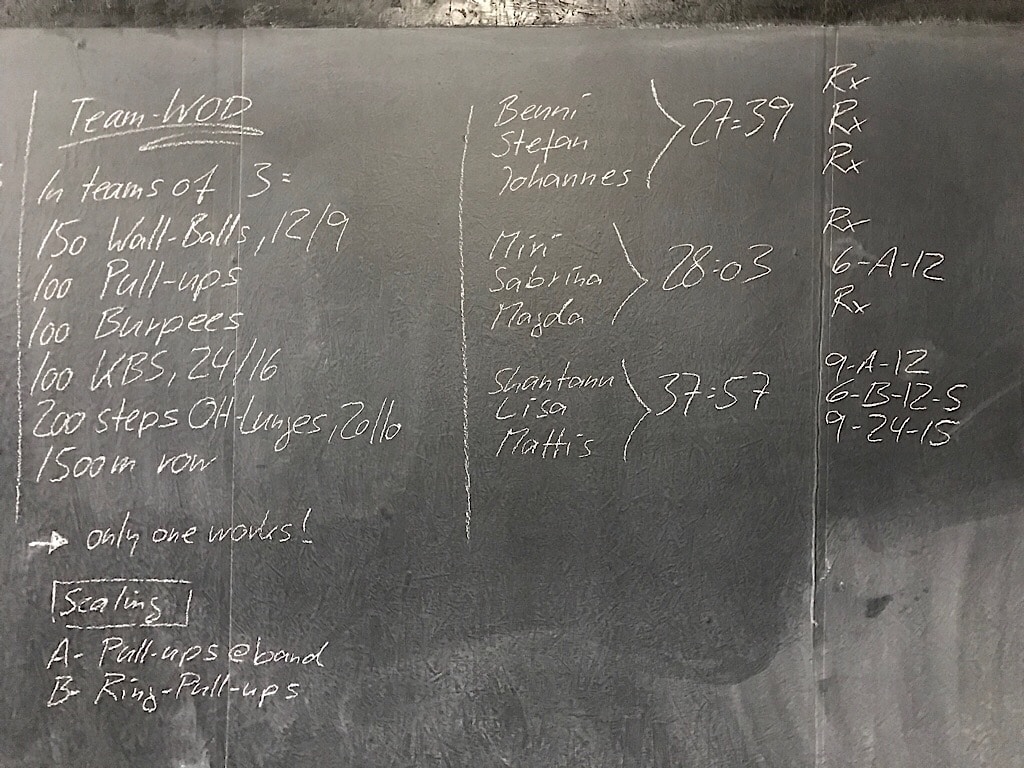 Team-WOD
In teams of 3:
150 Wall-Balls, 12/9
100 Pull-ups
100 Burpees
100 KBS, 24/16
200 steps OH-Lunges, 20/10
1500m row
→ only one works!
Scaling
A- Pull-ups @ band
B- Ring-Pull-ups
Benni
Stefan
Johannes
27:39
Rx
Rx
Rx
Mini
Sabrina
Magda
28:03
Rx
6-A-12
Rx
Shantanu
Lisa
Mattis
37:57
9-A-12
6-B-12-5
9-24-15